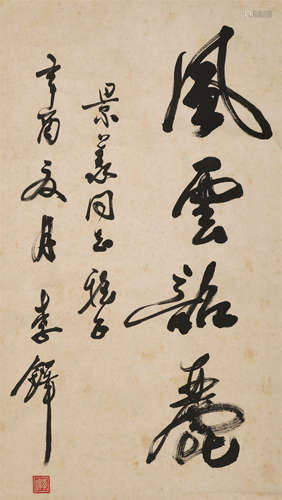 風雲麗
景同志雅正
辛酉夏月 李鐸